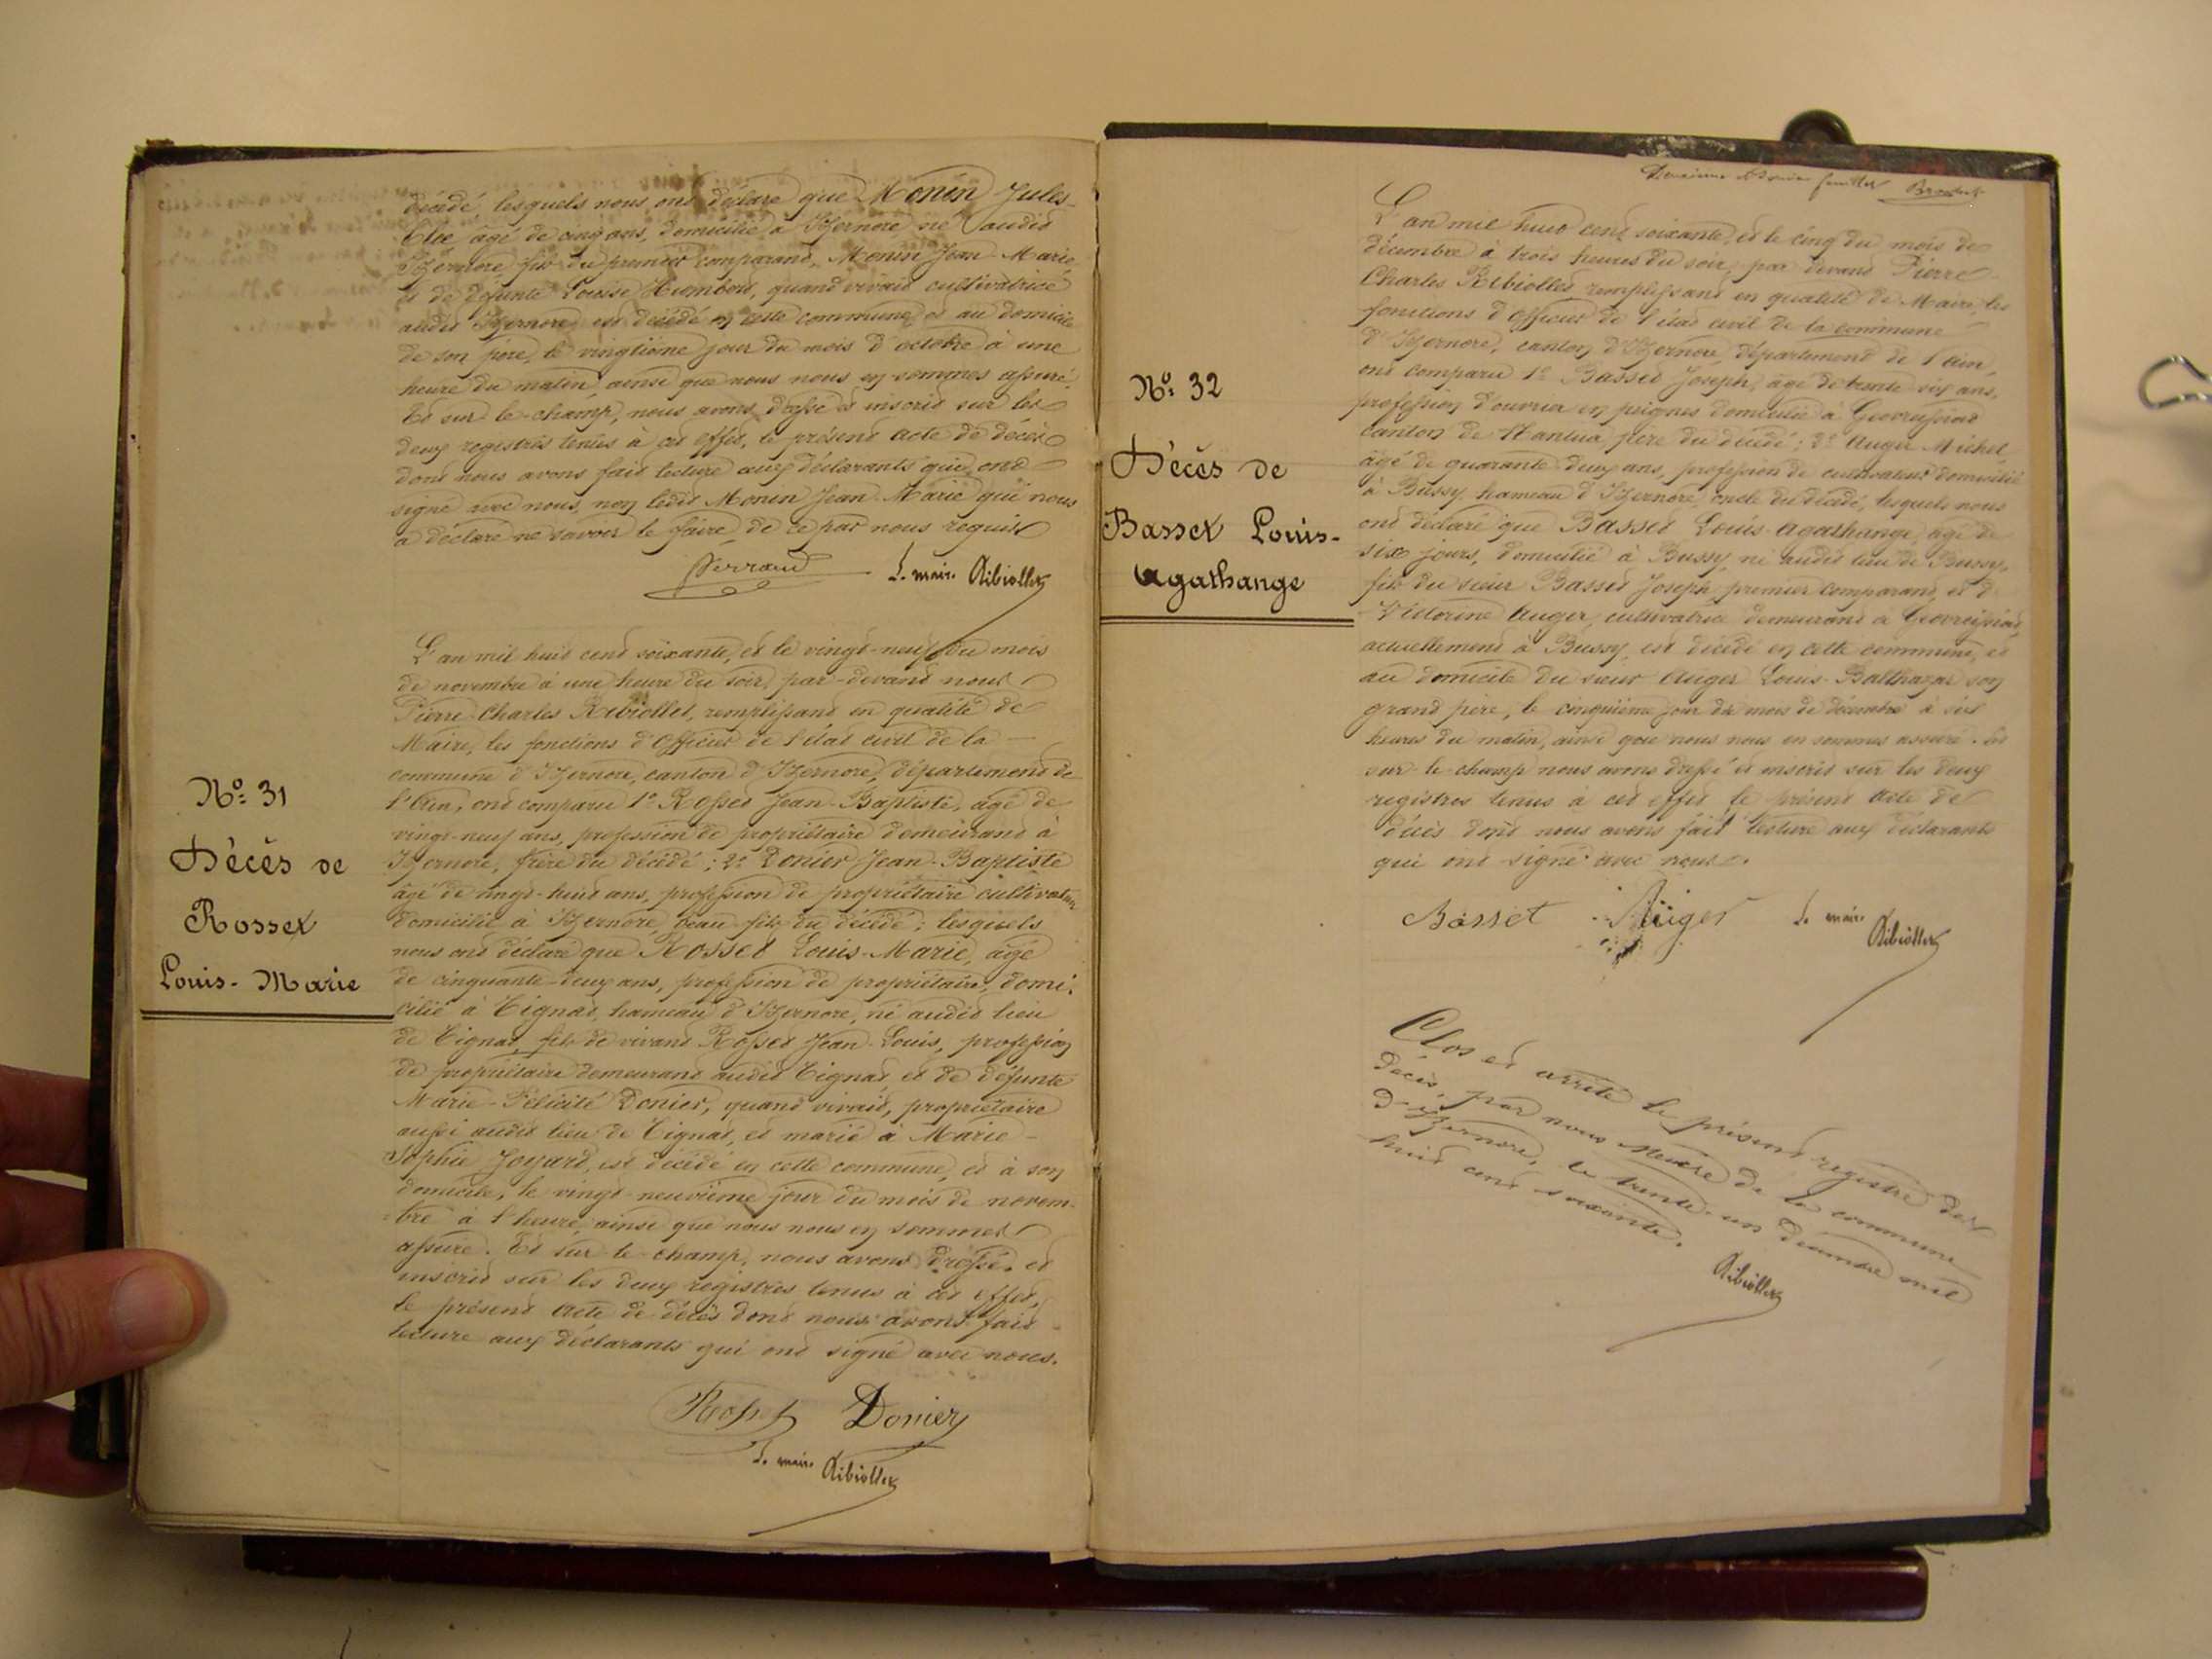 décédé, lesquels nous ont déclaré que Monin Jules-
âgé de cinq ans, domicilié à Izernore né audit
Izernore, fils du premier comparant, Monin Jean-Marie
et de défunte Louise Humbert, quand vivait cultivatrice
audit Izernore, est décédé en cette commune, et au domicile
de son père, le vingtième jour du mois d'octobre à une
heure du matin, ainsi que nous nous en sommes assuré.
Et sur-le-champ, nous avons dressé et inscrit sur les
deux registres tenus à cet effet, le présent acte de décès
dont nous avons fait lecture aux déclarants qui ont
signé avec nous, non ledit Monin Jean-Marie qui nous
a déclaré ne savoir le faire, de ce par nous requis
Perraud Le maire Ribiollet
N°. 31
Décès de
Rosset
Louis-Marie
L'an mil huit cent soixante, et le vingt-neuf du mois
de novembre à une heure du soir, par-devant nous
Pierre-Charles Ribiollet, remplissant en qualité de
Maire, les fonctions d'Officier de l'état civil de la
commune d'Izernore, canton d'Izernore, département de
l'Ain, ont comparu 1° Rosset Jean-Baptiste, âgé de
vingt-neuf ans, profession de propriétaire demeurant à
Izernore, frère du décédé; 2° Donier Jean-Baptiste
âgé de vingt-huit ans, profession de propriétaire cultivateur
domicilié à Izernore, beau-fils du décédé; lesquels
nous ont déclaré que Rosset Louis-Marie, âgé
de cinquante-deux ans, profession de propriétaire, domi-
cilié à Tignat, hameau d'Izernore, né audit lieu
de Tignat, fils de vivant Rosset Jean-Louis, profession
de propriétaire demeurant audit Tignat, et de défunte
Marie-Félicité Donier, quand vivait, propriétaire
aussi audit lieu de Tignat, et marié à Marie-
Sophie Joyard, est décédé en cette commune, et à son
domicile, le vingt-neuvième jour du mois de novem-
bre à 1 heure, ainsi que nous nous en sommes
assuré. Et sur-le-champ, nous avons dressé et
inscrit sur les deux registres tenus à cet effet,
le présent acte de décès dont nous avons fait
lecture aux déclarants qui ont signé avec nous.
Rosset Donier
Le maire Ribiollet
feuillet
N°. 32
Décès de
Basset Louis-
Agathange
L'an mil huit cent soixante, et le cinq du mois de
décembre à trois heures du soir, par devant Pierre-
Charles Ribiollet remplissant en qualité de Maire, les
fonctions d'officier de l'état civil de la commune
d'Izernore, canton d'Izernore, département de l'ain,
ont comparu 1° Basset Joseph, âgé de trente six ans,
profession d'ouvrier en peignes domicilié à Geovreissiat
canton de Nantua père du décédé; 2° Auger Michel
âgé de quarante-deux ans, profession de cultivateur domicilié
à Bussy, hameau d'Izernore, oncle du décédé, lesquels nous
ont déclaré que Basset Louis-Agathange, âgé de
six jours, domicilié à Bussy, né audit lieu de Bussy,
fils du sieur Basset Joseph premier comparant, et de
Victorine Auger, cultivatrice demeurant à Geovreissiat,
actuellement à Bussy, est décédé en cette commune, et
au domicile du sieur Auger Louis-Balthazar son
grand père, le cinquième jour du mois de décembre à six
heures du matin, ainsi que nous nous en sommes assuré. Et
sur-le-champ nous avons dressé et inscrit sur les deux
registres tenus à cet effet le présent acte de
décès dont nous avons fait lecture aux déclarants
qui ont signé avec nous.
Basset Auger Le maire Ribiollet
Clos et arrêté le présent registre des
décès, par nous Maire de la commune
d'Izernore, le trente-un décembre mil
huit cent soixante.
Ribiollet